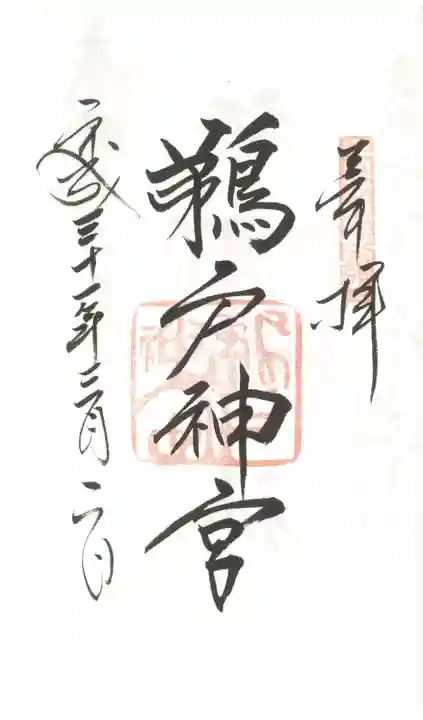 奉拝
鵜戸神宮
平成三十一年二月二日